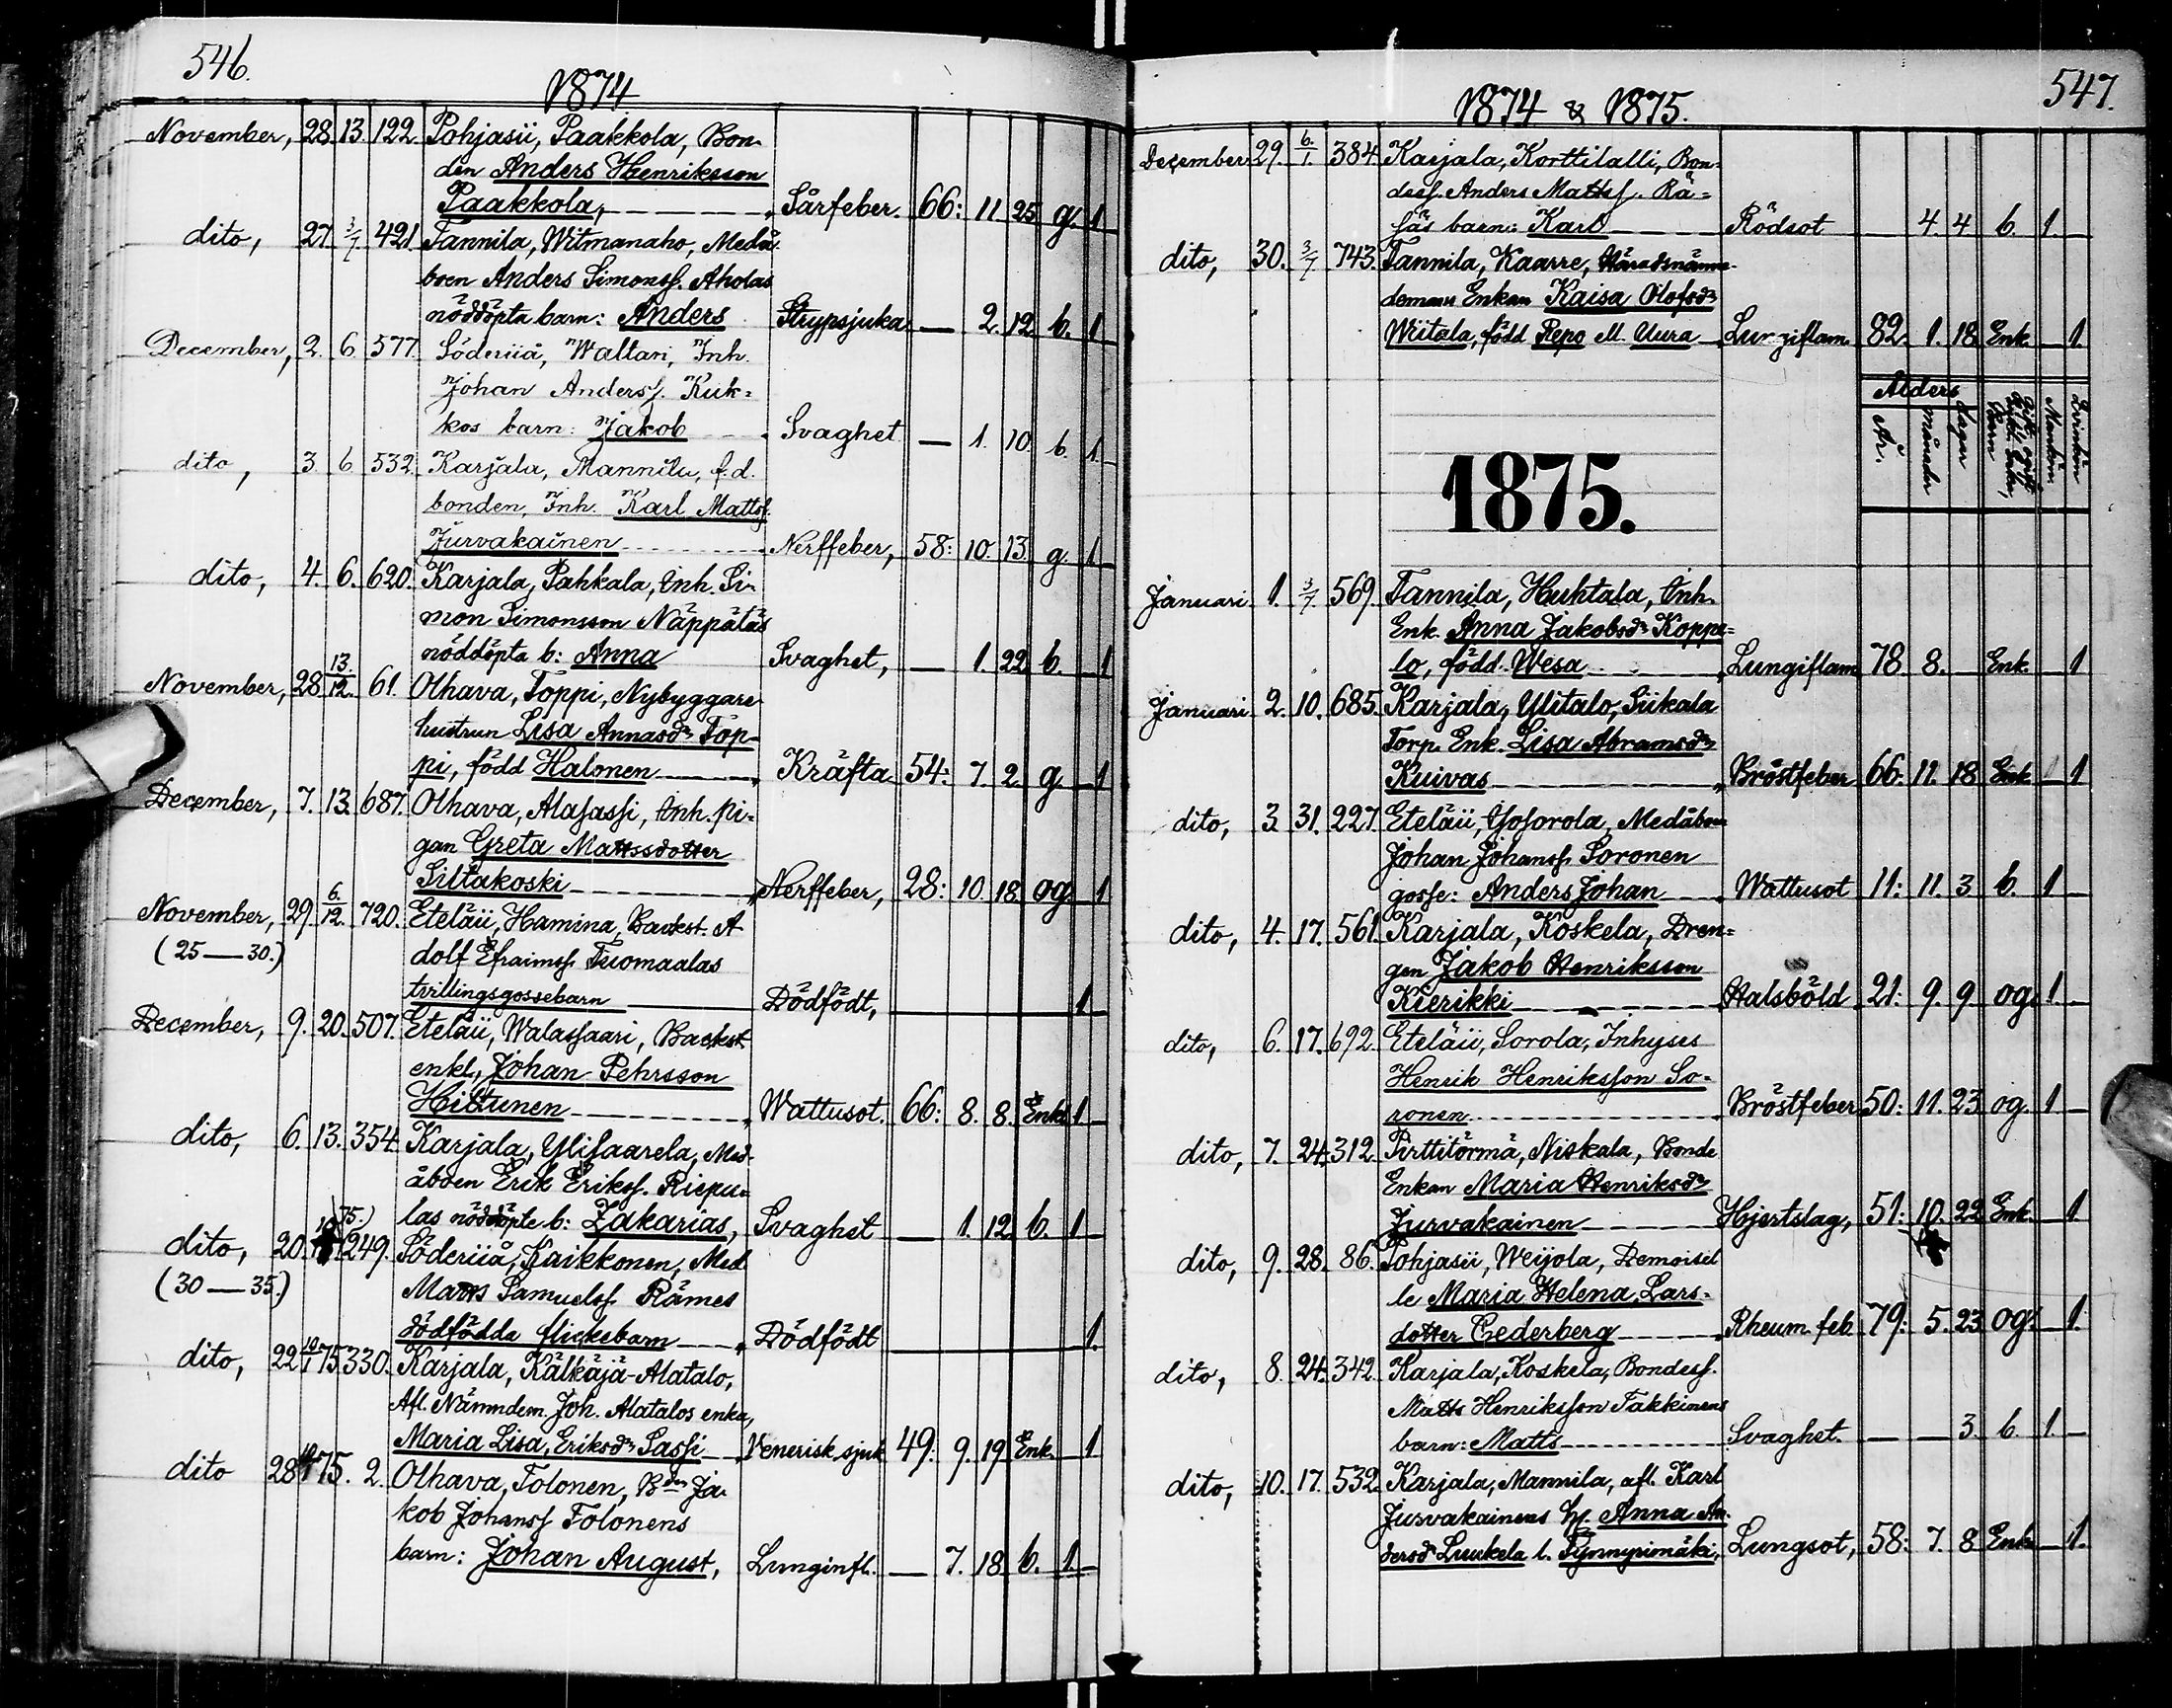 546.
1874
November, 28. 13. 122. Pohjasii, Paakkola, Bon-
den Anders Henriksson
Paakkola, Sårfeber. 66: 11. 25 g. 1
dito, 27. 3/7 421. Tannila, Witmanaho, Medå
boen Anders Simonss. Aholas
nöddöpta barn: Anders Strypsjuka — 2. 12. b. 1
December, 2. 6. 577. Söderiiå, Waltari, Inh.
Johan Anderss. Kuk-
kos barn: Jakob Svaghet — 1. 10. b. 1.
dito, 3. 6. 532. Karjala, Mannila, f.d.
bonden, Inh. Karl Mattss.
Jurvakainen Nerffeber, 58: 10. 13. g. 1
dito, 4. 6. 620. Karjala, Pahkala, Inh. Si-
mon Simonsson Näppätäs
nöddöpta b: Anna Svaghet, — 1. 22. b. 1
November, 28. 13./12. 61. Olhava, Toppi, Nybyggare
hustrun Lisa Annasdr Top-
pi, född Halonen Kräfta 54: 7. 2. g. 1
December, 7. 13. 687. Olhava, Alasassi, Inh. pi-
gan Greta Mattssdotter
Siltakoski Nerffeber, 28: 10. 18. og. 1
November, 29. 6./12. 720. Eteläii, Hamina, Backst. A
(25—30.) dolf Efraimss. Tuomaalas
tvillingsgossebarn Dödfödt, 1
December, 9. 20. 507. Eteläii, Walassaari, Backst.
enkl., Johan Pehrsson
Hiltunen Wattusot. 66: 8. 8. Enkl. 1
dito, 6. 13. 354. Karjala, Ylisaarela, Med-
åboen Erik Erikss. Riepu-
las nöddöpte b: Zakarias, Svaghet — 1. 12. b. 1
dito, 20. 75.) 249. Söderiiå, Kaikkonen, Med
(30—35.) Matts Samuelss. Rämes
dödfödda flickebarn Dödfödt 1.
dito, 22 10/1 75. 330. Karjala, Kälkäjä-Alatalo,
Afl. Nämndem. Joh. Alatalos enka,
Maria Lisa, Eriksdr Sassi Venerisk sjuk 49: 9. 19. Enk. 1
dito 28 75. 2. Olhava, Tolonen, Bden Ja-
kob Johanss Tolonens
barn: Johan August, Lunginfl. — 7. 18. b. 1.
547.
1874 & 1875.
December. 29. 6./1. 384. Karjala, Korttilalli, Bon-
dess. Anders Mattss. Rä-
säs barn: Karl Rödsot 4. 4 b. 1.
dito, 30. 3/7 743. Tannila, Kaarre, Häradsnämn-
demans Enkan Kaisa Olofsdr
Wiitala, född Repo ell. Uura Lungiflam. 82. 1. 18. Enk. 1.
Ålders
År.
Månader
Dagar
Mankön
Qvinkön
1875.
Januari 1. 3/7. 569. Tannila, Huhtala, Inh.
Enk. Anna Jakobsdr Koppe-
lo, född. Wesa Lungiflam 78 8. Enk. 1
Januari 2. 10. 685. Karjala, Ylitalo, Siikala
Torp. Enk. Lisa Abramsdr
Kuivas Bröstfeber 66. 11. 18 Enk 1
dito, 3. 31. 227. Eteläii, Yososrola, Medåboen
Johan Johanss. Soronen
gosse: Anders Johan Wattusot 11: 11. 3 b. 1
dito, 4. 17. 561. Karjala, Koskela, Dren-
gen Jakob Henriksson
Kierikki Halsböld 21: 9. 9 og. 1
dito, 6. 17. 692. Eteläii, Sorola, Inhyses
Henrik Henriksson So-
ronen. Bröstfeber 50: 11. 23 og. 1
dito, 7. 24. 312. Pirttitörmä, Niskala, Bonde
Enkan Maria Henriksdr
Jurvakainen Hjertslag, 51: 10. 22 Enk. 1.
dito, 9. 28. 86. Pohjasii, Weijola, Demoisel
le Maria Helena, Lars-
dotter Cederberg Rheum. feb. 79: 5. 23 og. 1.
dito, 8. 24. 342. Karjala, Koskela, Bondess.
Matts Henriksson Takkinens
barn: Matts Svaghet. — — 3. b. 1.
dito, 10. 17. 532. Karjala, Mannila, afl. Karl
Jurvakainens h. Anna An-
dersdr Luukela l. Tynnyrimäki, Lungsot, 58: 7. 8 Enk. 1.